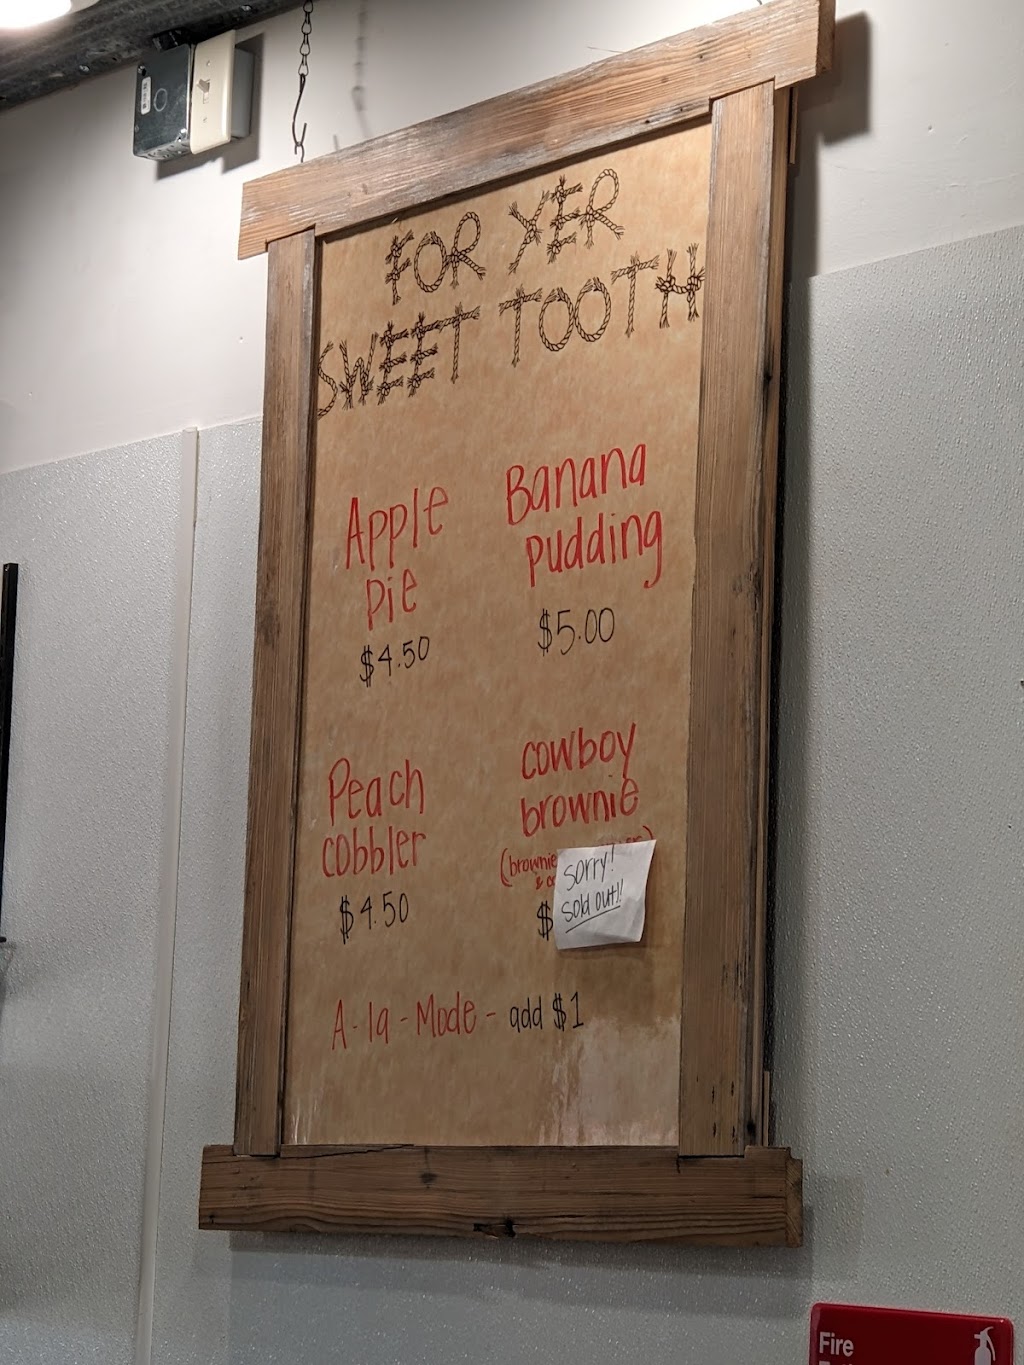 FOR YER
SWEET TOOTH
Apple
Pie
$4.50
Banana
pudding
$5.00
Peach
cobbler
$4.50
cowboy
brownie
(brownie
&
$
Sorry!
Sold out!!
A-la-Mode- add $1
Fire